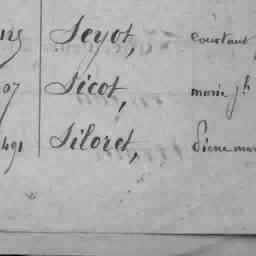 Seyot, constant
07 Sicot, marie jh
491 Siloret, Pierre mar